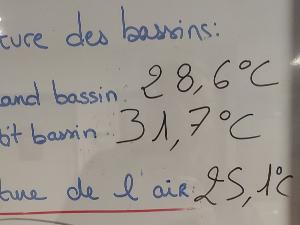 ture des bassins:
and bassin: 28,6°C
tit bassin: 31,7°C
ture de l'air: 25,1°C